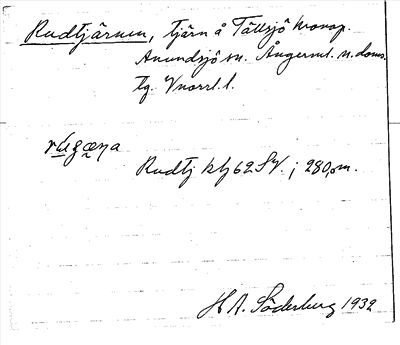 Rudtjärnen, tjärn å Tällsjö kronop.
Anundsjö sn. Ångerml. n. doms.
tg. Vnorrl. l.
Rudtj kbj 62 SV. ; 280,0 m.
H A. Söderberg 1932